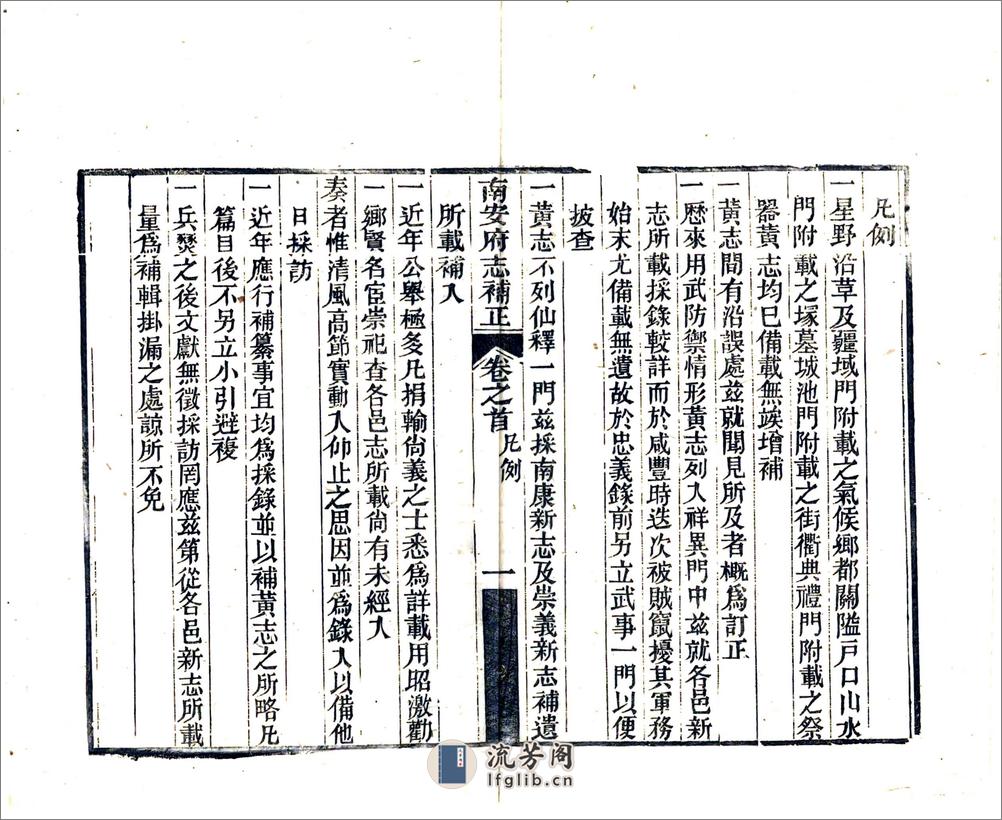 凡例
一星野沿革及疆域門附載之氣候鄉都關隘戸口山水
門附載之塚墓城池門附載之街衢典禮門附載之祭
器黃志均巳備載無竢增補
一黃志間有沿誤處兹就聞見所及者概爲訂正
一歷來用武防禦情形黃志列入祥異門中兹就各邑新
志所載採錄較詳而於咸豐時迭次被賊竄擾其軍務
始末尤備載無遺故於忠義錄前另立武事一門以便
披查
一黃志不列仙釋一門兹採南康新志及崇義新志補遺
南安府志補正 卷之首 凡例 一
所載補入
一近年公舉極多凡捐輸尙義之士悉爲詳載用昭激勸
一鄉賢名宦崇祀查各邑志所載尙有未經入
奏者惟清風高節實動人仰止之思因並爲錄入以備他
日採訪
一近年應行補纂事宜均爲採錄並以補黃志之所略凡
篇目後不另立小引避複
一兵燹之後文獻無徵採訪罔應兹第從各邑新志所載
量爲補輯掛漏之處諒所不免
流芳阁
lfglib.cn